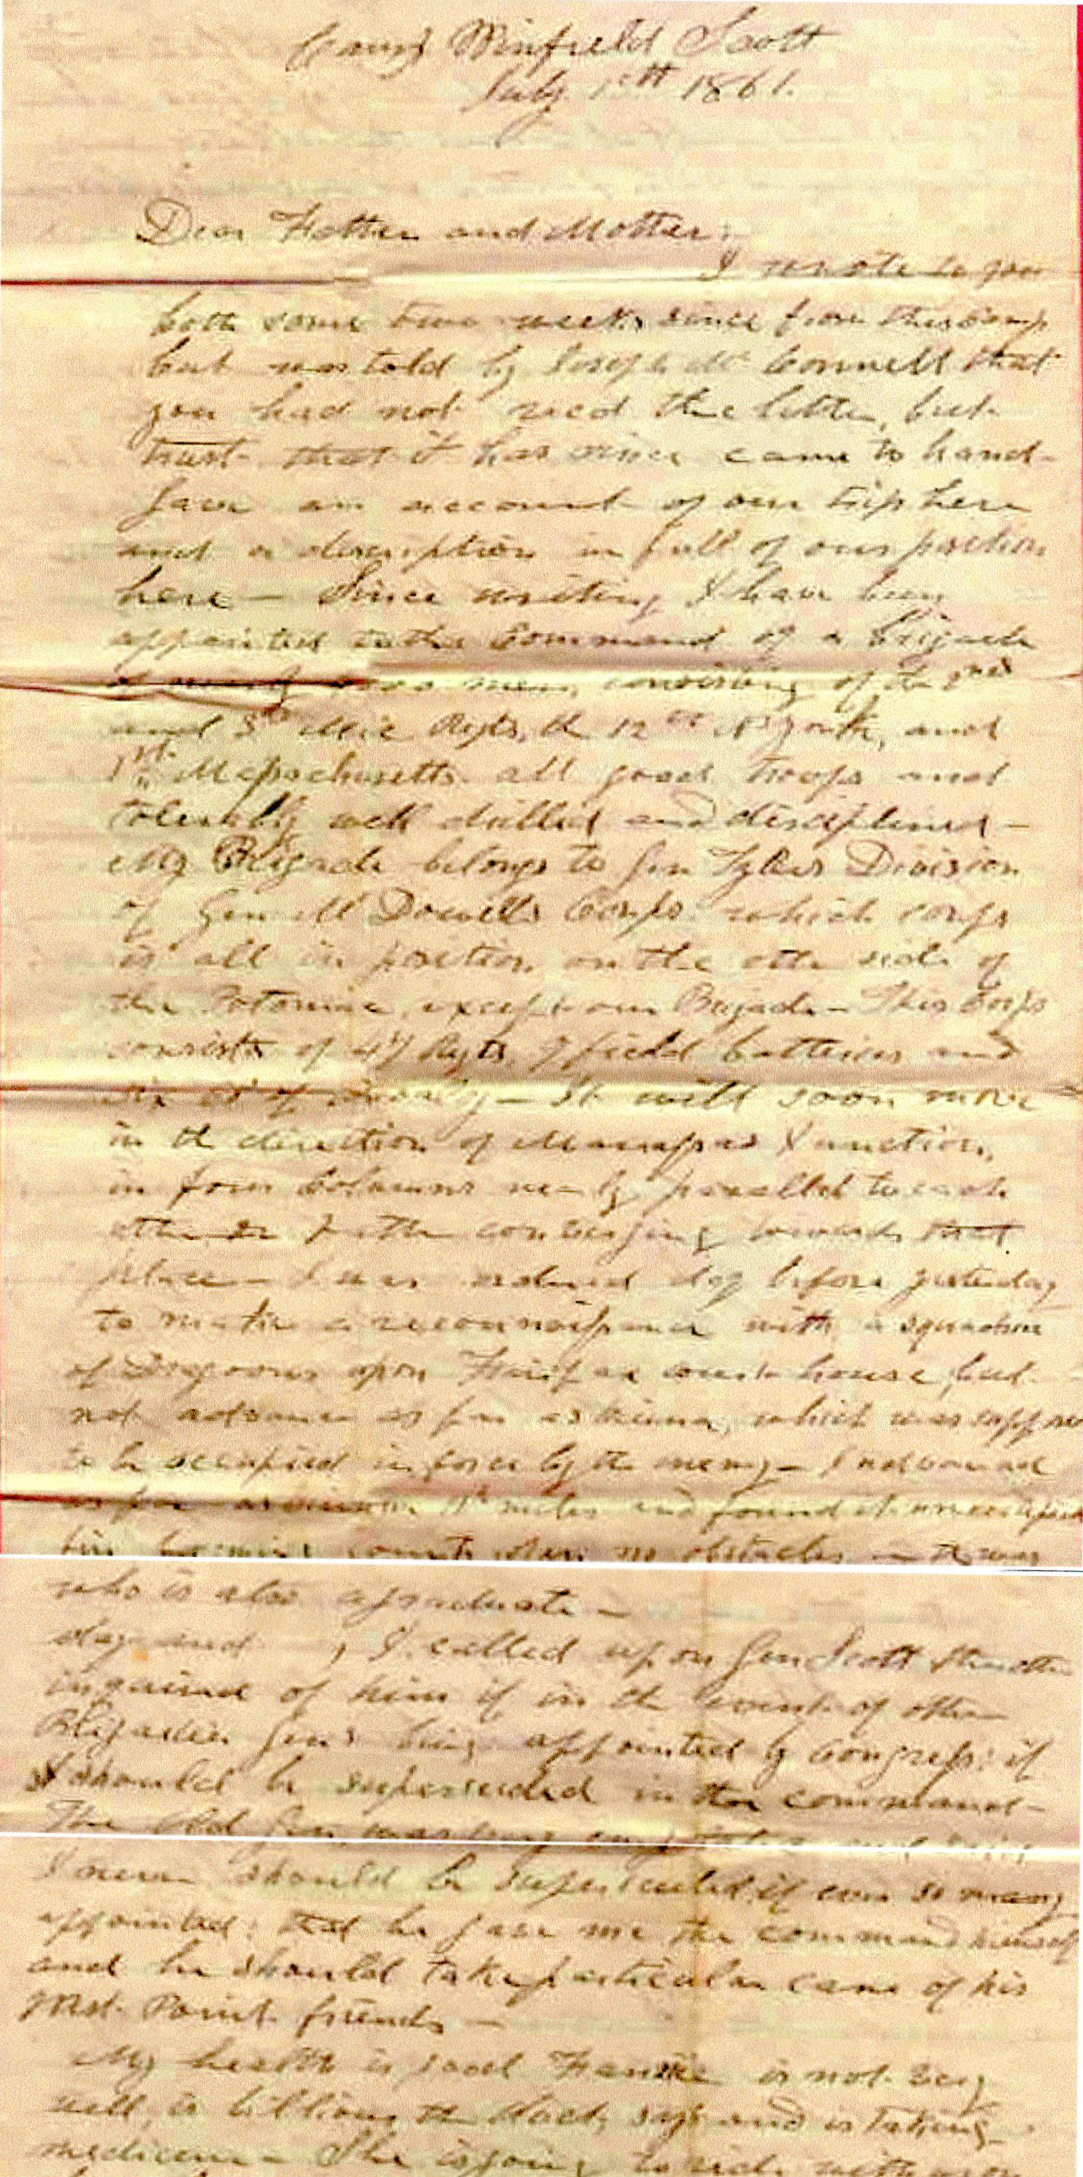 Camp Winfield Scott
July 1861.
Dear Father and Mother;
I wrote to you
both some two weeks since from this Camp
but was told by Joseph Mc Connell that
you had not recd the letter, but
trust that it has since came to hand-
Gave an account of our trip here
and a description in full of our position
here — Since writing I have been
appointed to the Command of a brigade
of nearly men, consisting of the 2nd
and 3rd Mic Regts, the 12th N York, and
1st Massachusetts all good troops and
tolerably well drilled and disciplined —
My Brigade belongs to Gen Tylers Division
of Gen Mc Dowells Corps which corps
is all in position on the othe side of
the Potomac, except our Brigade — This Corps
consists of 47 Regts, 9 field batteries and
six of cavalry — It will soon move
in the direction of Manassas Junction,
in four Columns nearly parallel to each
other converging towards that
place — I was ordered day before yesterday
to make a reconnoissance with a squadron
of Dragoons upon Fairfax court house, but
not advance as far as Vienna, which was
to be occupied in force by the enemy — I advanced
as far as Vienna miles and found it unoccupied
no obstacles
who is also a graduate —
day and , I called upon Gen Scott
inquired of him if in the event of other
Brigadier Genls being appointed by Congress if
I should be superseded in the command —
The Old Gen
I never should be superseded if ever so many
appointed; that he gave me the command himself
and he should take particular care of his
West Point friends —
My health is good is not very
well, is billious the Doct. says and is taking
medicine — She is going to ride with